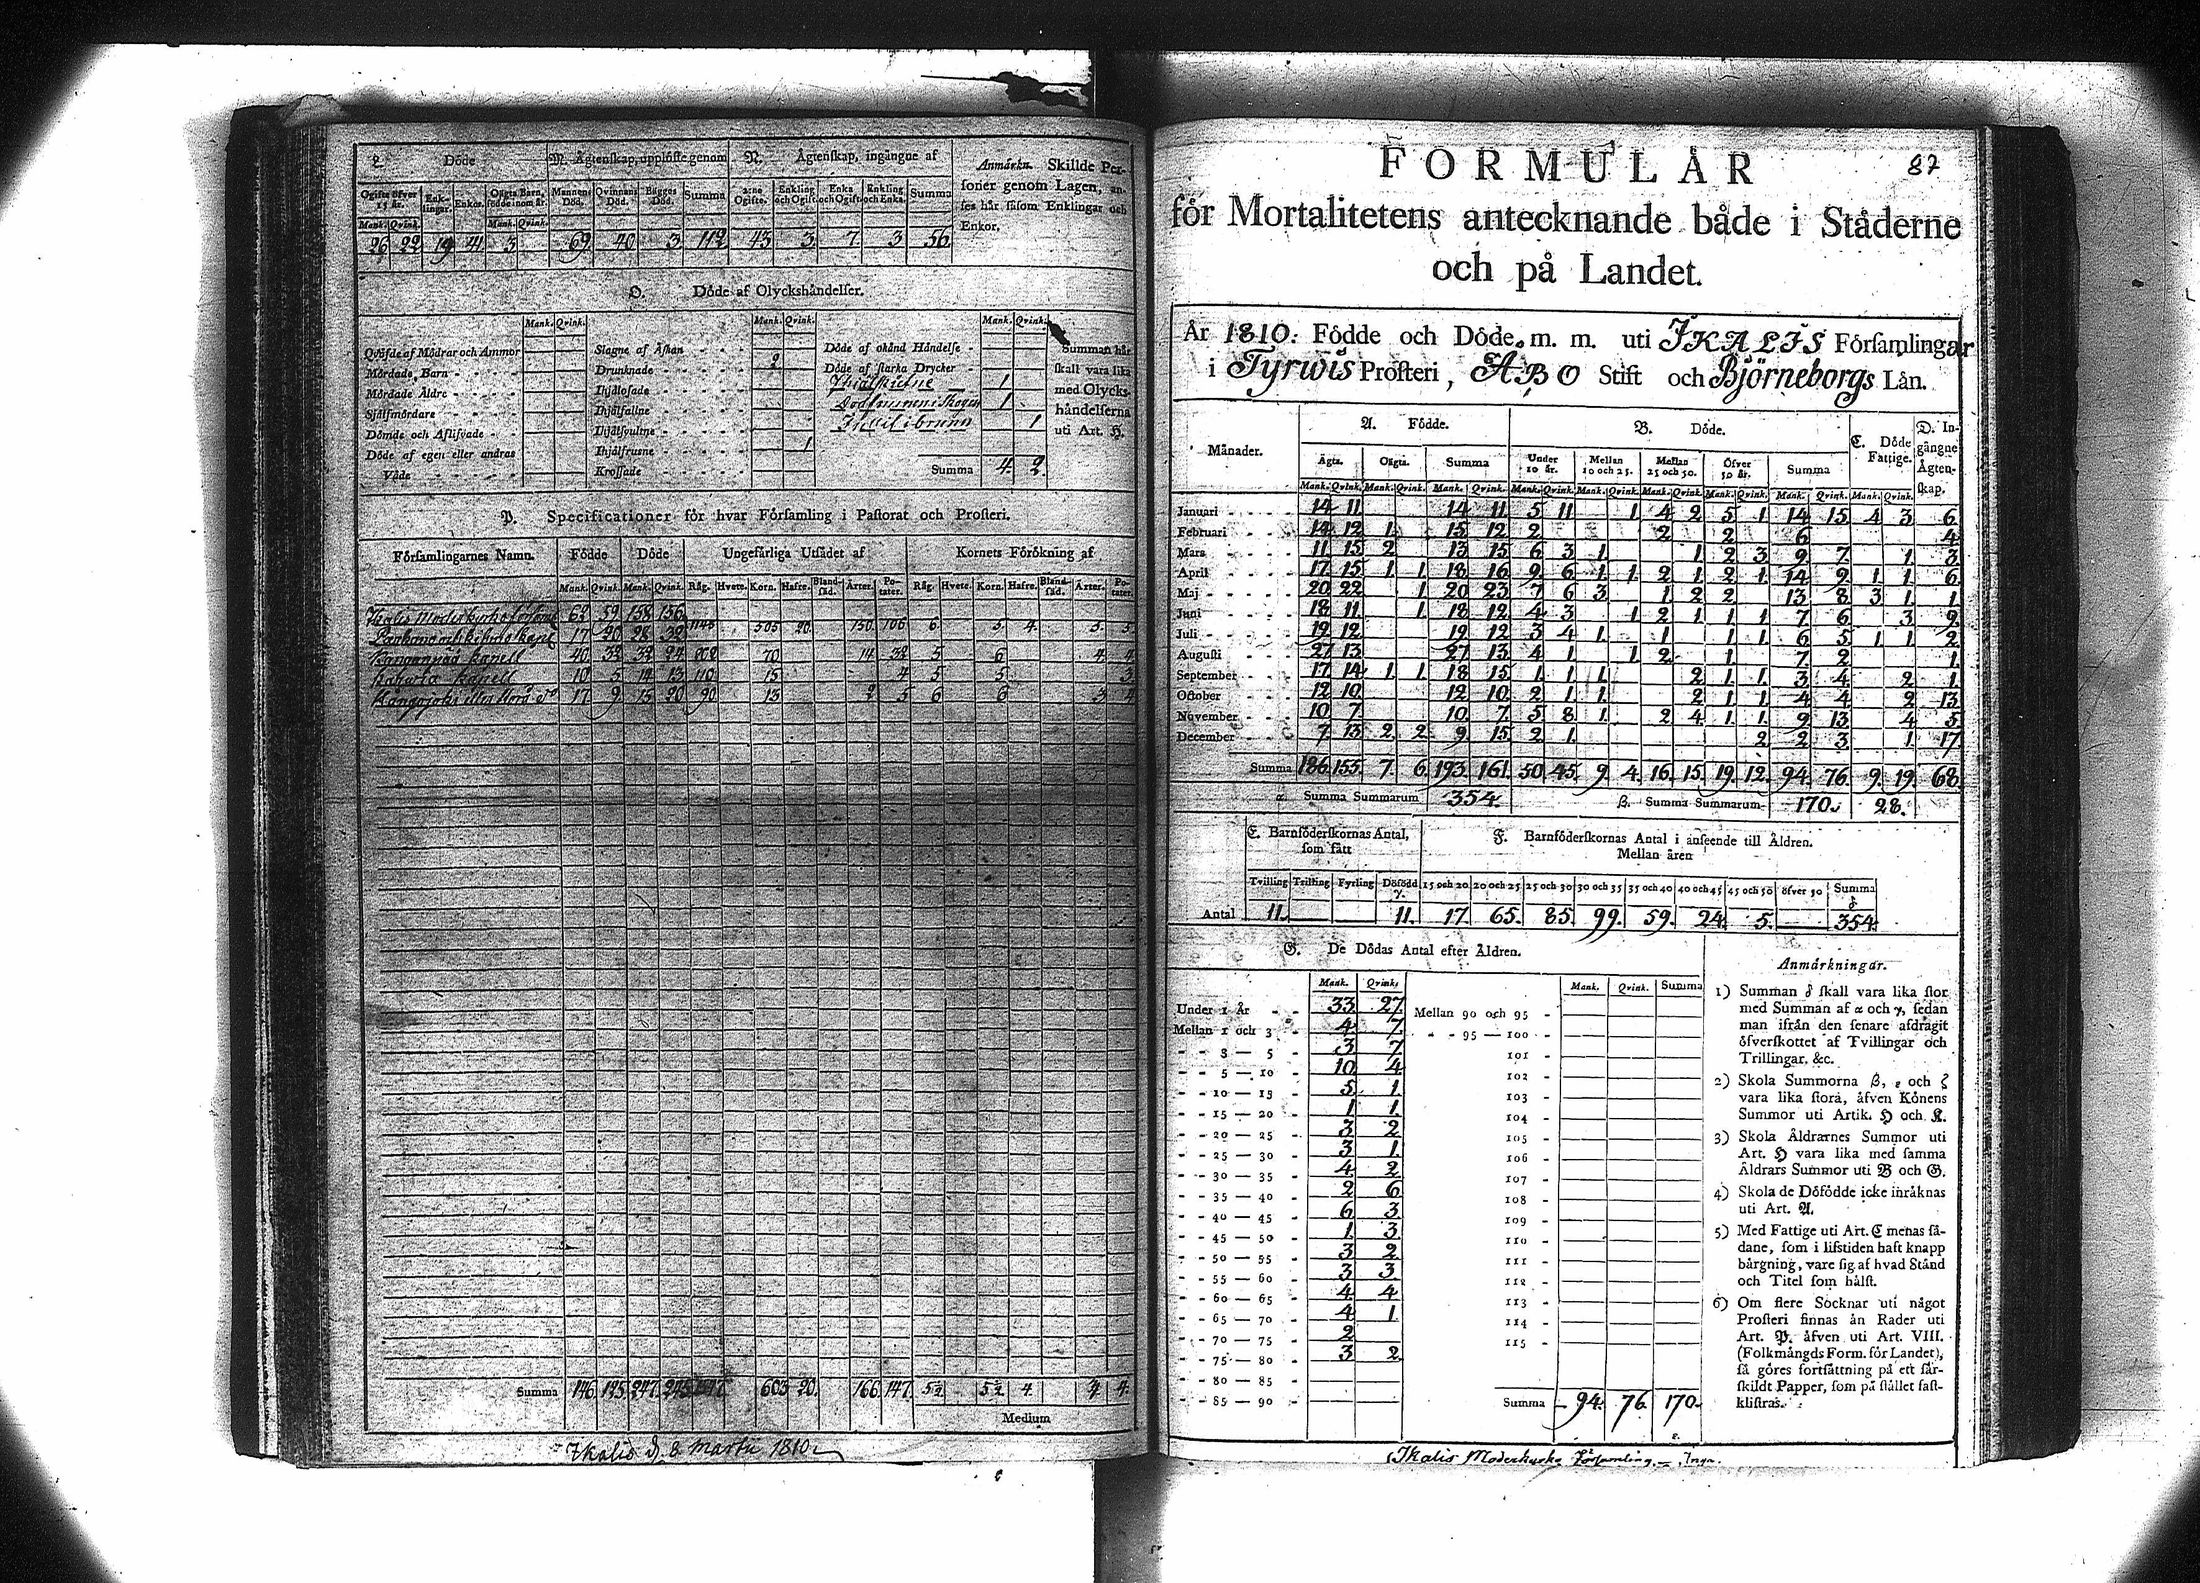 2 Döde M. Ägtenskap, upplöste genom N. Ägtenskap, ingångne af Anmärkn. Skillde Per-
soner genom Lagen, an-
ses här såsom Enklingar och
Enkor.
Ogifte öfver 15 år. Enk-lingar. Enkor. Oägta Barn, födde inom år. Mannens Död. Qvinnans Död. Bägges Död. Summa 2:ne Ogifte. Enkling och Ogift. Enka och Ogift. Enkling och Enka. Summa
Mank. Qvink. Mank. Qvink.
26 22 19 41 3 69 40 3 112 43 3 7 3 56
O. Döde af Olyckshändelser.
Mank. Qvink. Mank. Qvink. Mank. Qvink.
Qväfde af Mödrar och Ammor Slagne af Åskan Döde af okänd Händelse Summan här
Mördade Barn Drunknade 2 Döde af starka Drycker skall vara lika
Mördade Äldre Ihjälofade 1 med Olycks-
Sjelfmördare Ihjälfallne 1 händelserna
Dömde och Aflifvade Ihjälsvultne 1 uti Art. H.
Döde af egen eller andras Ihjälfrusne 1
Våde Krossade Summa 4. 2
P. Specificationer för hvar Församling i Pastorat och Prosteri.
Församlingarnes Namn. Födde Döde Ungefärliga Utsädet af Kornets Förökning af
Mank. Qvink. Mank. Qvink. Råg. Hvete. Korn. Hafre. Bland-säd. Ärter. Po-tater. Råg. Hvete. Korn. Hafre. Bland-säd. Ärter. Po-tater.
Ikalis Moderkyrko 62 59 158 156
17 20 28 32 505 20. 150 106 6 5 4. 5 5
Kapell 40 32 32 24 70 14 32 5 6 4 4
Kapell 10 5 14 13 110 15 4 5 5 3
17 9 15 20 90 13 2 5 6 6 3 4
Summa 146 125 247 245 603 20. 166. 147. 5½ 5½ 4. 4. 4.
Medium
Ikalis d. 8 Martii 1810.
87
FORMULÄR
för Mortalitetens antecknande både i Städerne
och på Landet.
År 1810. Födde och Döde. m. m. uti IKALIS Församlingar
i Tyrwis Prosteri, ÅBO Stift och Björneborgs Län.
Månader. A. Födde. B. Döde. C. Döde Fattige. D. In-gångne Ägten-skap.
Ägta. Oägta. Summa Under 10 år. Mellan 10 och 25. Mellan 25 och 50. Öfver 50 år. Summa
Mank. Qvink. Mank. Qvink. Mank. Qvink. Mank. Qvink. Mank. Qvink. Mank. Qvink. Mank. Qvink. Mank. Qvink. Mank. Qvink.
Januari 14 11 14 11 5 11 1 4 2 5 1 14 15 4 3 6
Februari 14 12 1 15 12 2 2 2 6 4
Mars 11 15 2 13 15 6 3 1 1 2 3 9 7 1 3
April 17 15 1 1 18 16 9 6 1 1 2 1 2 1 14 9 1 1 6
Maj 20 22 1 20 23 7 6 3 1 2 2 13 8 3 1 1
Juni 18 11 1 18 12 4 3 1 2 1 1 1 7 6 3 9
Juli 19 12 19 12 3 4 1 1 1 1 6 5 1 1 2
Augusti 27 13 27 13 4 1 1 2 1 7 2 1
September 17 14 1 1 18 15 1 1 1 2 1 1 3 4 2 1
October 12 10 12 10 2 1 1 2 1 1 4 4 2 13
November 10 7 10 7 5 8 1 2 4 1 1 9 13 4 5
December 7 13 2 2 9 15 2 1 2 2 3 1 17
Summa 186 155 7 6 193 161 50 45 9 4 16 15 19 12 94 76 9 19 68
α. Summa Summarum 354. β. Summa Summarum 170. 28.
E. Barnföderskornas Antal, som fått F. Barnföderskornas Antal i anseende till Åldren.
Mellan åren
Tvilling Trilling Fyrling Dödfödd γ. 15 och 20 20 och 25 25 och 30 30 och 35 35 och 40 40 och 45 45 och 50 öfver 50 Summa δ
Antal 11. 11. 17 65. 85 99. 59. 24. 5. 354.
G. De Dödas Antal efter Åldren.
Mank. Qvink. Mank. Qvink. Summa
Under 1 År 33 27 Mellan 90 och 95
Mellan 1 och 3 4 7 95 — 100
3 — 5 3 7 101
5 — 10 10 4 102
10 — 15 5 1 103
15 — 20 1 1 104
20 — 25 3 2 105
25 — 30 3 1 106
30 — 35 4 2 107
35 — 40 2 6 108
40 — 45 6 3 109
45 — 50 1 3 110
50 — 55 3 2 111
55 — 60 3 3 112
60 — 65 4 4 113
65 — 70 4 1 114
70 — 75 2 115
75 — 80 3 2
80 — 85
85 — 90 Summa 94. 76. 170.
Anmärkningar.
1) Summan δ skall vara lika stor
med Summan af α och γ, sedan
man ifrån den senare afdragit
öfverskottet af Tvillingar och
Trillingar. &c.
2) Skola Summorna β, ε och ζ
vara lika stora, äfven Könens
Summor uti Artik. H och K.
3) Skola Åldrarnes Summor uti
Art. H vara lika med samma
Åldrars Summor uti B och G.
4) Skola de Döfödde icke inräknas
uti Art. A.
5) Med Fattige uti Art. C menas så-
dane, som i lifstiden haft knapp
bärgning, vare sig af hvad Stånd
och Titel som hälst.
6) Om flere Socknar uti något
Prosteri finnas än Rader uti
Art. P. äfven uti Art. VIII.
(Folkmängds Form. för Landet),
så göres fortsättning på ett sär-
skildt Papper, som på stället fast-
klistras.
Ikalis Moderkyrko Församling.